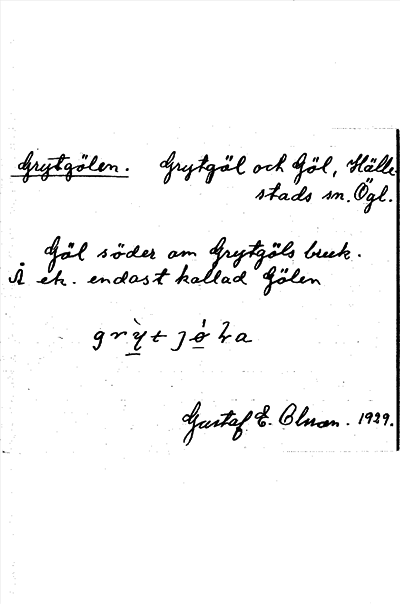 Grytgölen. Grytgöl och Göl, Hälle-
stads sn. Ögl.
Göl söder om Grytgöls bruk.
Å ek. endast kallad Gölen
Gustaf E. 1929.